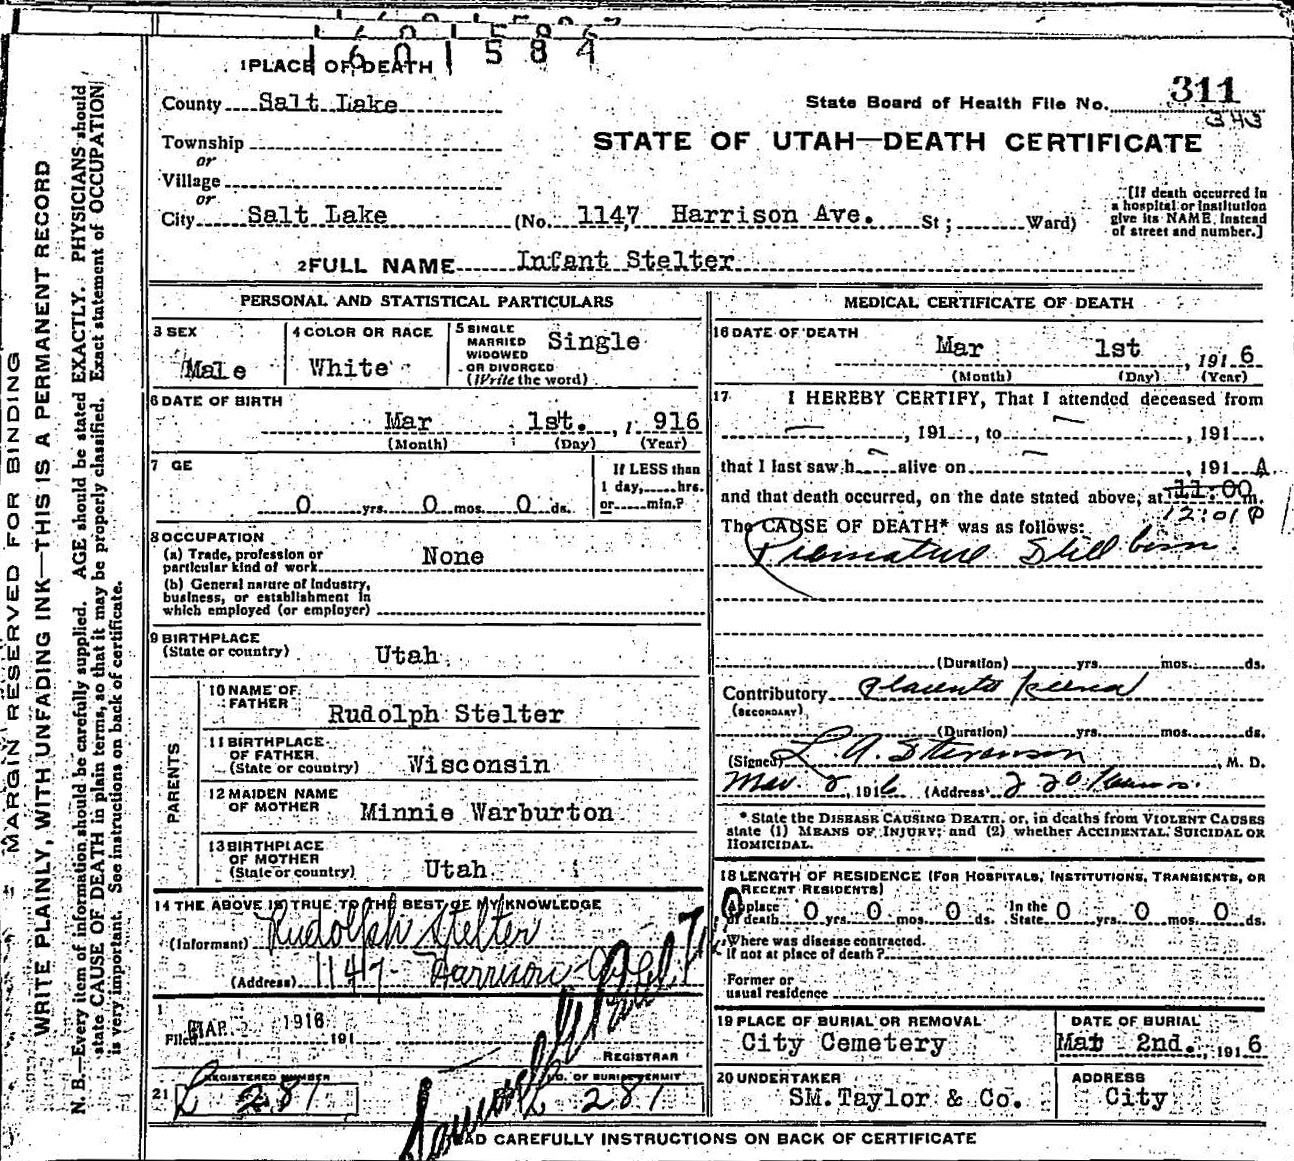 1601584
1 PLACE OF DEATH
County Salt Lake
State Board of Health File No. 311
343
Township
or
Village
or
City Salt Lake (No. 1147 Harrison Ave. St; Ward)
STATE OF UTAH—DEATH CERTIFICATE
[If death occurred in
a hospital or institution
give its NAME instead
of street and number.]
2 FULL NAME Infant Stelter
PERSONAL AND STATISTICAL PARTICULARS
3 SEX
Male
4 COLOR OR RACE
White
5 SINGLE
MARRIED
WIDOWED
OR DIVORCED
(Write the word)
Single
6 DATE OF BIRTH
Mar 1st. , 1 916
(Month) (Day) (Year)
7 GE
0 yrs. 0 mos. 0 ds.
If LESS than
1 day, hrs.
or min.?
8 OCCUPATION
(a) Trade, profession or
particular kind of work None
(b) General nature of Industry,
business, or establishment in
which employed (or employer)
9 BIRTHPLACE
(State or country) Utah
PARENTS
10 NAME OF
FATHER
Rudolph Stelter
11 BIRTHPLACE
OF FATHER
(State or country) Wisconsin
12 MAIDEN NAME
OF MOTHER Minnie Warburton
13 BIRTHPLACE
OF MOTHER
(State or country) Utah
14 THE ABOVE IS TRUE TO THE BEST OF MY KNOWLEDGE
(Informant) Rudolph Stelter
(Address) 1147 Harrison
Filed MAR 2 1916 191
REGISTRAR
21 REGISTERED NUMBER
L 281
NO. OF BURIAL PERMIT
L 281
MEDICAL CERTIFICATE OF DEATH
16 DATE OF DEATH
Mar 1st , 191 6
(Month) (Day) (Year)
17 I HEREBY CERTIFY, That I attended deceased from
, 191 , to , 191 .
that I last saw h alive on , 191 A
and that death occurred, on the date stated above, at 11:00 m.
12:01 P
The CAUSE OF DEATH* was as follows:
Premature Still born
(Duration) yrs. mos. ds.
Contributory
(SECONDARY)
(Duration) yrs. mos. ds.
(Signed) L A. Stevenson , M. D.
Mar. 2, 1916 (Address)
* State the DISEASE CAUSING DEATH, or, in deaths from VIOLENT CAUSES
state (1) MEANS OF INJURY; and (2) whether ACCIDENTAL, SUICIDAL OR
HOMICIDAL.
18 LENGTH OF RESIDENCE (FOR HOSPITALS, INSTITUTIONS, TRANSIENTS, OR
RECENT RESIDENTS)
At place
of death 0 yrs. 0 mos. 0 ds. In the
State 0 yrs. 0 mos. 0 ds.
Where was disease contracted.
If not at place of death?
Former or
usual residence
19 PLACE OF BURIAL OR REMOVAL
City Cemetery
DATE OF BURIAL
Mar 2nd. , 191 6
20 UNDERTAKER
SM. Taylor & Co.
ADDRESS
City
READ CAREFULLY INSTRUCTIONS ON BACK OF CERTIFICATE
MARGIN RESERVED FOR BINDING
WRITE PLAINLY, WITH UNFADING INK—THIS IS A PERMANENT RECORD
N. B.—Every item of information should be carefully supplied. AGE should be stated EXACTLY. PHYSICIANS should
state CAUSE OF DEATH in plain terms, so that it may be properly classified. Exact statement of OCCUPATION
is very important. See instructions on back of certificate.